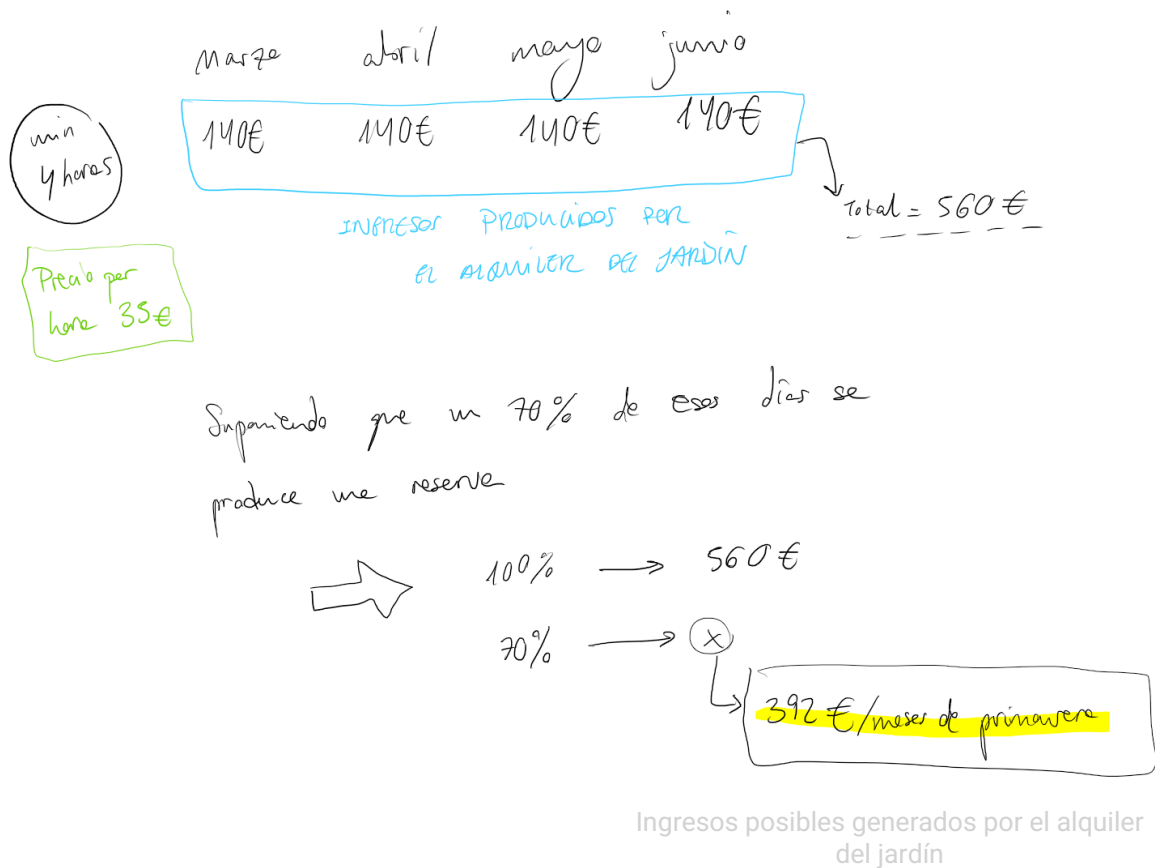 Marzo abril mayo junio
min
4 horas
140€ 140€ 140€ 140€
Total = 560 €
INGRESOS PRODUCIDOS POR
EL ALQUILER DEL JARDÍN
Precio por
hora 35€
Suponiendo que un 70% de esos días se
produce una reserva
100% → 560 €
70% → x
392 €/meses de primavera
Ingresos posibles generados por el alquiler
del jardín